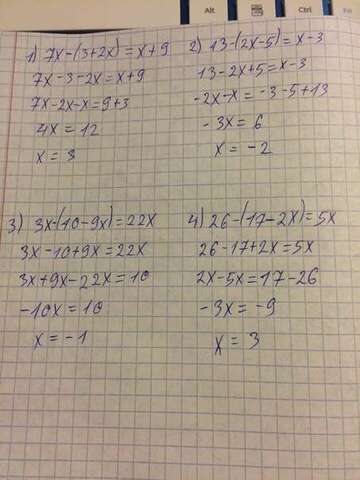 Alt
Ctrl
1) 7x-(3+2x)=x+9
7x-3-2x=x+9
7x-2x-x=9+3
4x=12
x=3
2) 13-(2x-5)=x-3
13-2x+5=x-3
-2x-x=-3-5+13
-3x=6
x=-2
3) 3x-(10-9x)=22x
3x-10+9x=22x
3x+9x-22x=10
-10x=10
x=-1
4) 26-(17-2x)=5x
26-17+2x=5x
2x-5x=17-26
-3x=-9
x=3